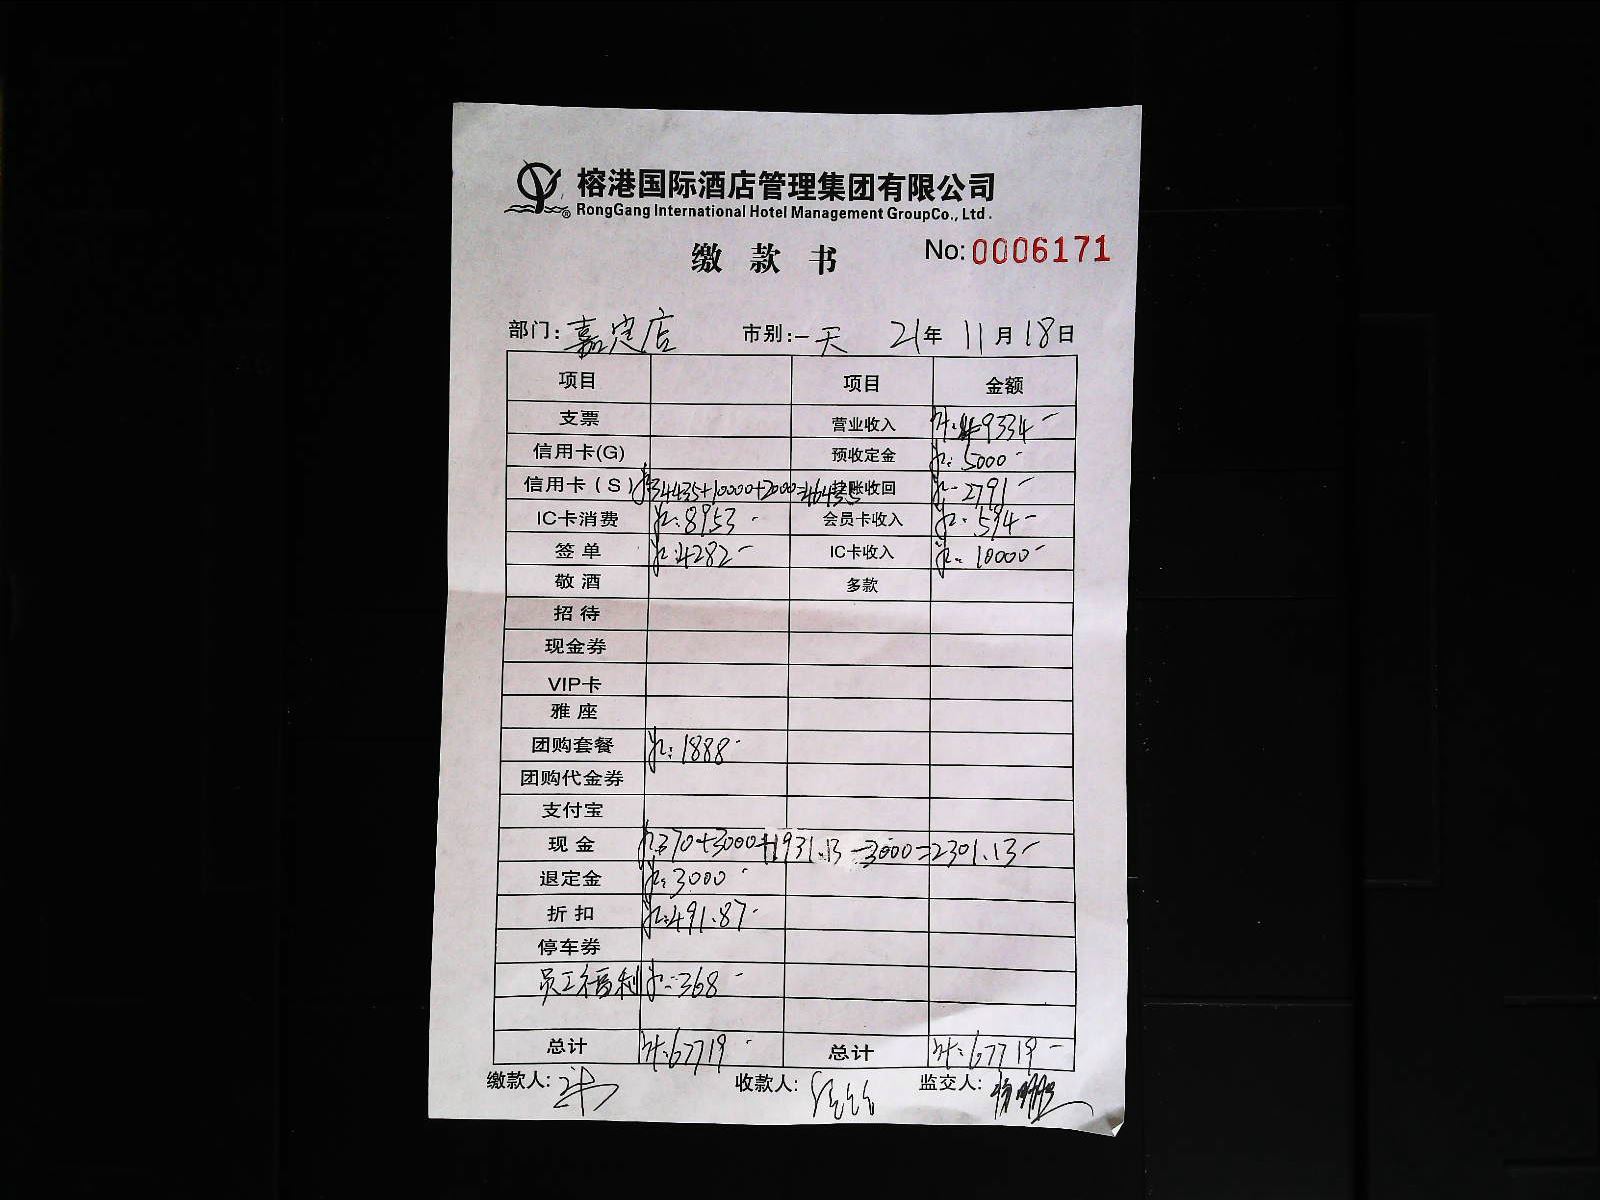 榕港国际酒店管理集团有限公司
RongGang International Hotel Management GroupCo., Ltd.
缴款书 No:0006171
部门:嘉定店 市别:一天 21年11月18日
项目 项目 金额
支票 营业收入 9334-
信用卡(G) 预收定金 5000-
信用卡(S) 34435+10000+2000=46435 挂账收回 2791-
IC卡消费 8953- 会员卡收入 594-
签单 4282- IC卡收入 10000-
敬酒 多款
招待
现金券
VIP卡
雅座
团购套餐 1888-
团购代金券
支付宝
现金 370+3000+1931.13-3000=2301.13-
退定金 3000-
折扣 491.87-
停车券
员工福利 368-
总计 67719- 总计 67719-
缴款人: 收款人: 监交人: